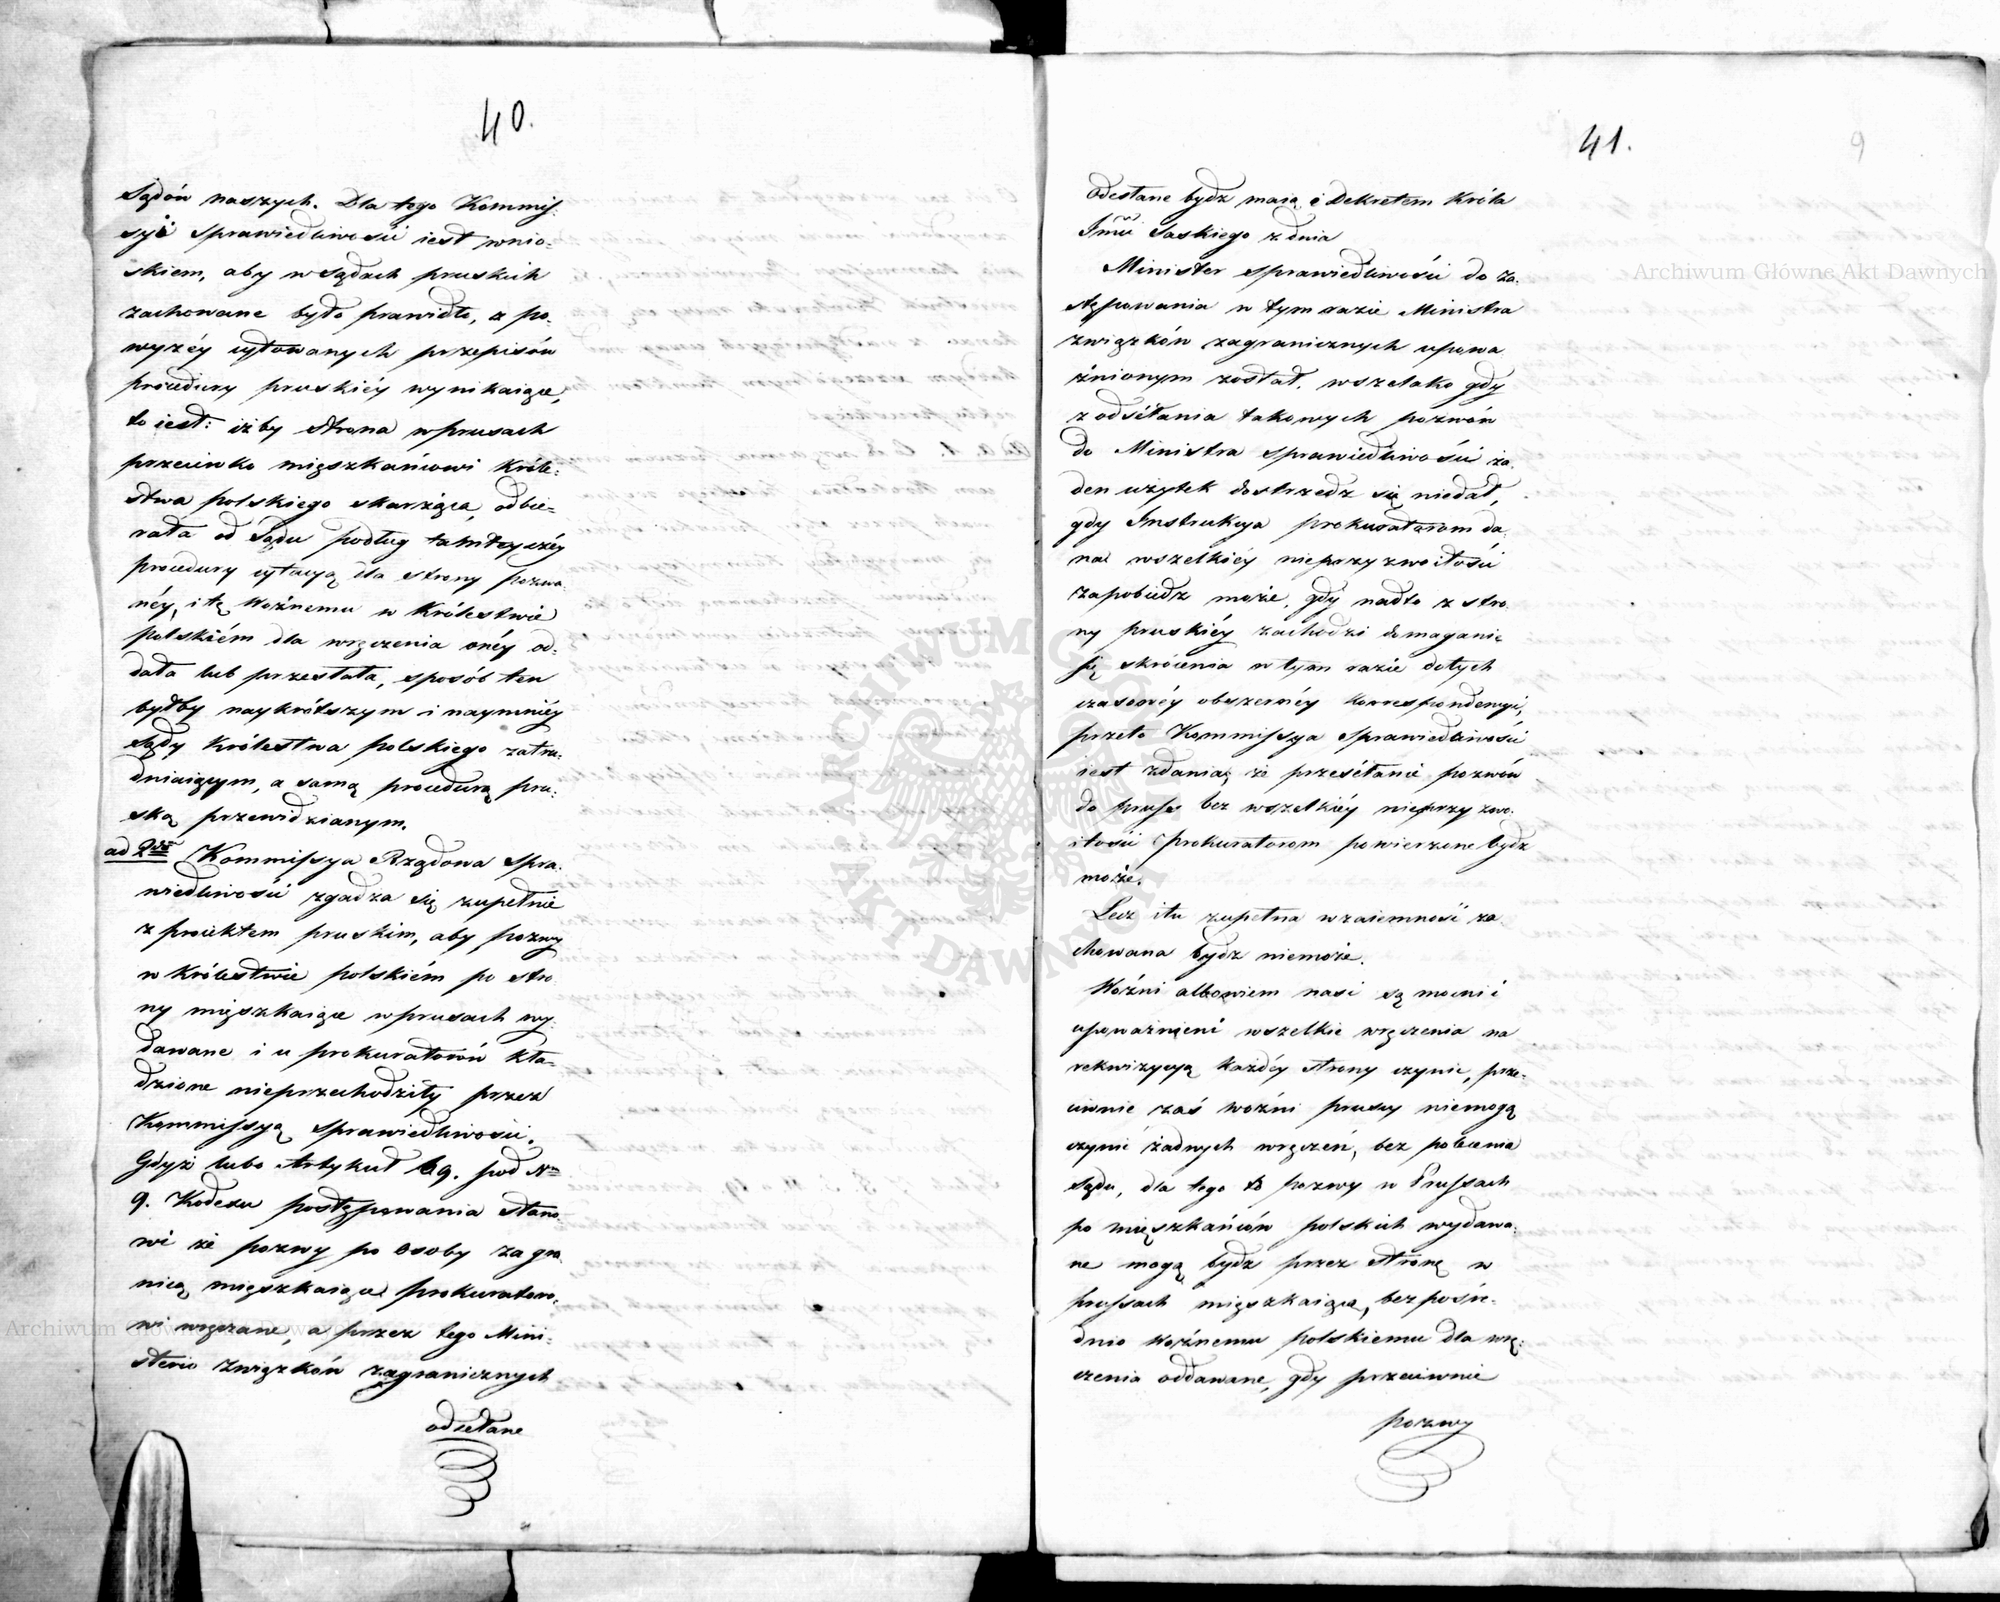 40.
Sądów naszych. Dla tego Kommis-
syia Sprawiedliwości iest wnio-
skiem, aby w Sądach pruskich
zachowane było prawidło, z po-
wyżéy cytowanych przepisów
procedury pruskiéy wynikaiące,
to iest: iżby strona w prusach
przeciwko mięszkańcowi Króle-
stwa polskiego skarżąca, odbie-
rała od Sądu podług tamteyszéy
procedury cytacyą dla strony pozwa-
néy, i tę Woźnemu w Królestwie
polskiém dla wręczenia onéy od-
dała lub przesłała, sposób ten
byłby naykrótszym i naymniéy
Sądy Królestwa polskiego zatru-
dniaiącym, a samą procedurą pru-
ską przewidzianym.
ad 2do Kommissya Rządowa Spra-
wiedliwości zgadza się zupełnie
z proiektem pruskim, aby pozwy
w Królestwie polskiém po stro-
ny mięszkaiące w prusach wy-
dawane i u prokuratorów kła-
dzione nieprzechodziły przez
Kommissyą Sprawiedliwości.
Gdyż lubo Artykuł 69. pod Nm
9. Kodexu postępowania stano-
wi że pozwy po osoby za gra-
nicą mięszkaiące prokuratoro-
wi wręczane, a przez tego Mini-
sterio związków zagranicznych
odsełane
41.
9
odesłane bydź maią i Dekretem Króla
Jmći Saskiego z dnia
Minister Sprawiedliwości do za-
stępowania w tym razie Ministra
związków zagranicznych upowa-
żnionym został, wszelako gdy
z odsełania takowych pozwów
do Ministra Sprawiedliwości ża-
den użytek dostrzedz się niedał,
gdy Instrukcya prokuratorom da-
na wszelkiéy nieprzyzwoitości
zapobiedz może, gdy nadto z stro-
ny pruskiéy zachodzi domaganie
się skrócenia w tym razie dotych-
czasowéy obszernéy korrespondencyi,
przeto Kommissya Sprawiedliwości
iest zdania że przesełanie pozwów
do pruss bez wszelkiéy nieprzyzwo-
itości prokuratorom powierzone bydź
może.
Lecz i tu zupełna wzaiemność za-
chowana bydź niemoże.
Woźni albowiem nasi są mocni i
upoważnieni wszelkie wręczenia na
rekwizycyą każdéy strony czynić, prze-
ciwnie zaś woźni pruscy niemogą
czynić żadnych wręczeń, bez polecenia
Sądu, dla tego to pozwy w Prussach
po mięszkańców polskich wydawa-
ne mogą bydź przez stronę w
prussach mięszkaiącą, bezpośre-
dnio Woźnemu polskiemu dla wrę-
czenia oddawane, gdy przeciwnie
pozwy
Archiwum Główne Akt Dawnych
ARCHIWUM GŁÓWNE
AKT DAWNYCH
Archiwum Główne Akt Dawnych